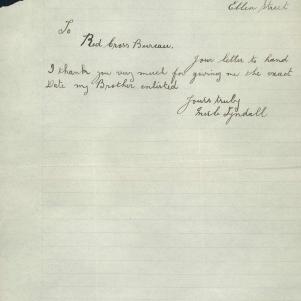 Ellen Street
To
Red Cross Bureau.
Your letter to hand
I thank you very much for giving me the exact
Date my Brother enlisted
Yours truly
Tyndall